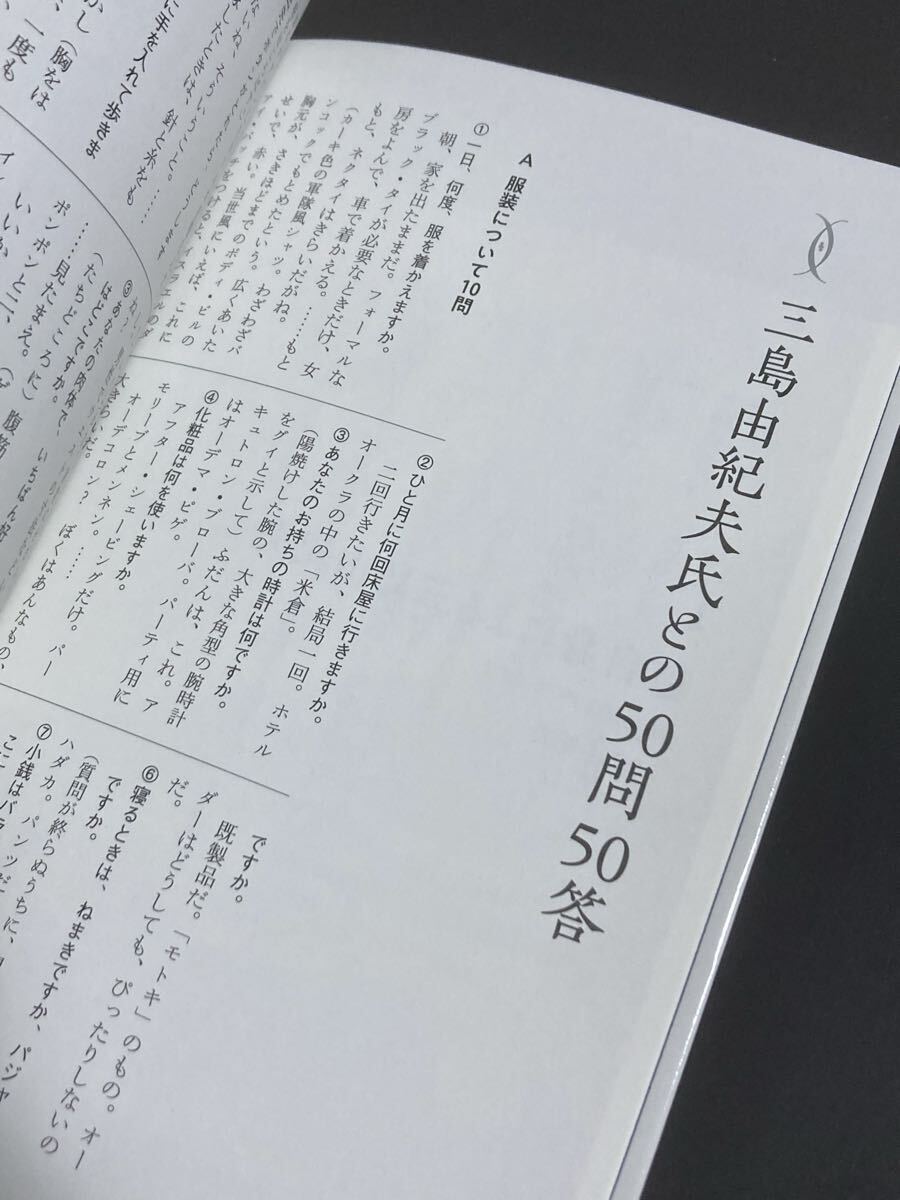 三島由紀夫氏との50問50答
A 服装について10問
①一日、何度、服を着かえますか。
朝、家を出たままだ。フォーマルな
ブラック・タイが必要なときだけ、女
房をよんで、車で着かえる。……もと
もと、ネクタイはきらいだがね。
（カーキ色の軍隊風シャツ。
ンコックでもとめたという。わざわざバ
胸元が、さきほどまでのボディ・ビルの
せいで、赤い。当世風にいえば、これに
広くあいた
②ひと月に何回床屋に行きますか。
二回行きたいが、結局一回。ホテル
オークラの中の「米倉」。
③あなたのお持ちの時計は何ですか。
（陽焼けした腕の、大きな角型の腕時計
をグイと示して）ふだんは、これ。ア
キュトロン・ブローバ。パーティ用に
はオーデマ・ピゲ。
④化粧品は何を使いますか。
アフター・シェービングだけ。バー
モリーブとメンネン。……
オーデコロン？ ぼくはあんなもの、
大きらいだ。
ですか。
既製品だ。「モトキ」のもの。オー
ダーはどうしても、ぴったりしないの
だ。
⑥寝るときは、ねまきですか、パジャ
ですか。
（質問が終らぬうちに、
ハダカ。パンツだ
⑦小銭はバラ
あなたの肉体で、いちばん好
はどこですか。
（たちどころに）
……見たまえ。
ポンポンと二、
いいか
に手を入れて歩きま
したときは、針と糸をも
ないね、そういうこと。……
かし（胸をは
一度も